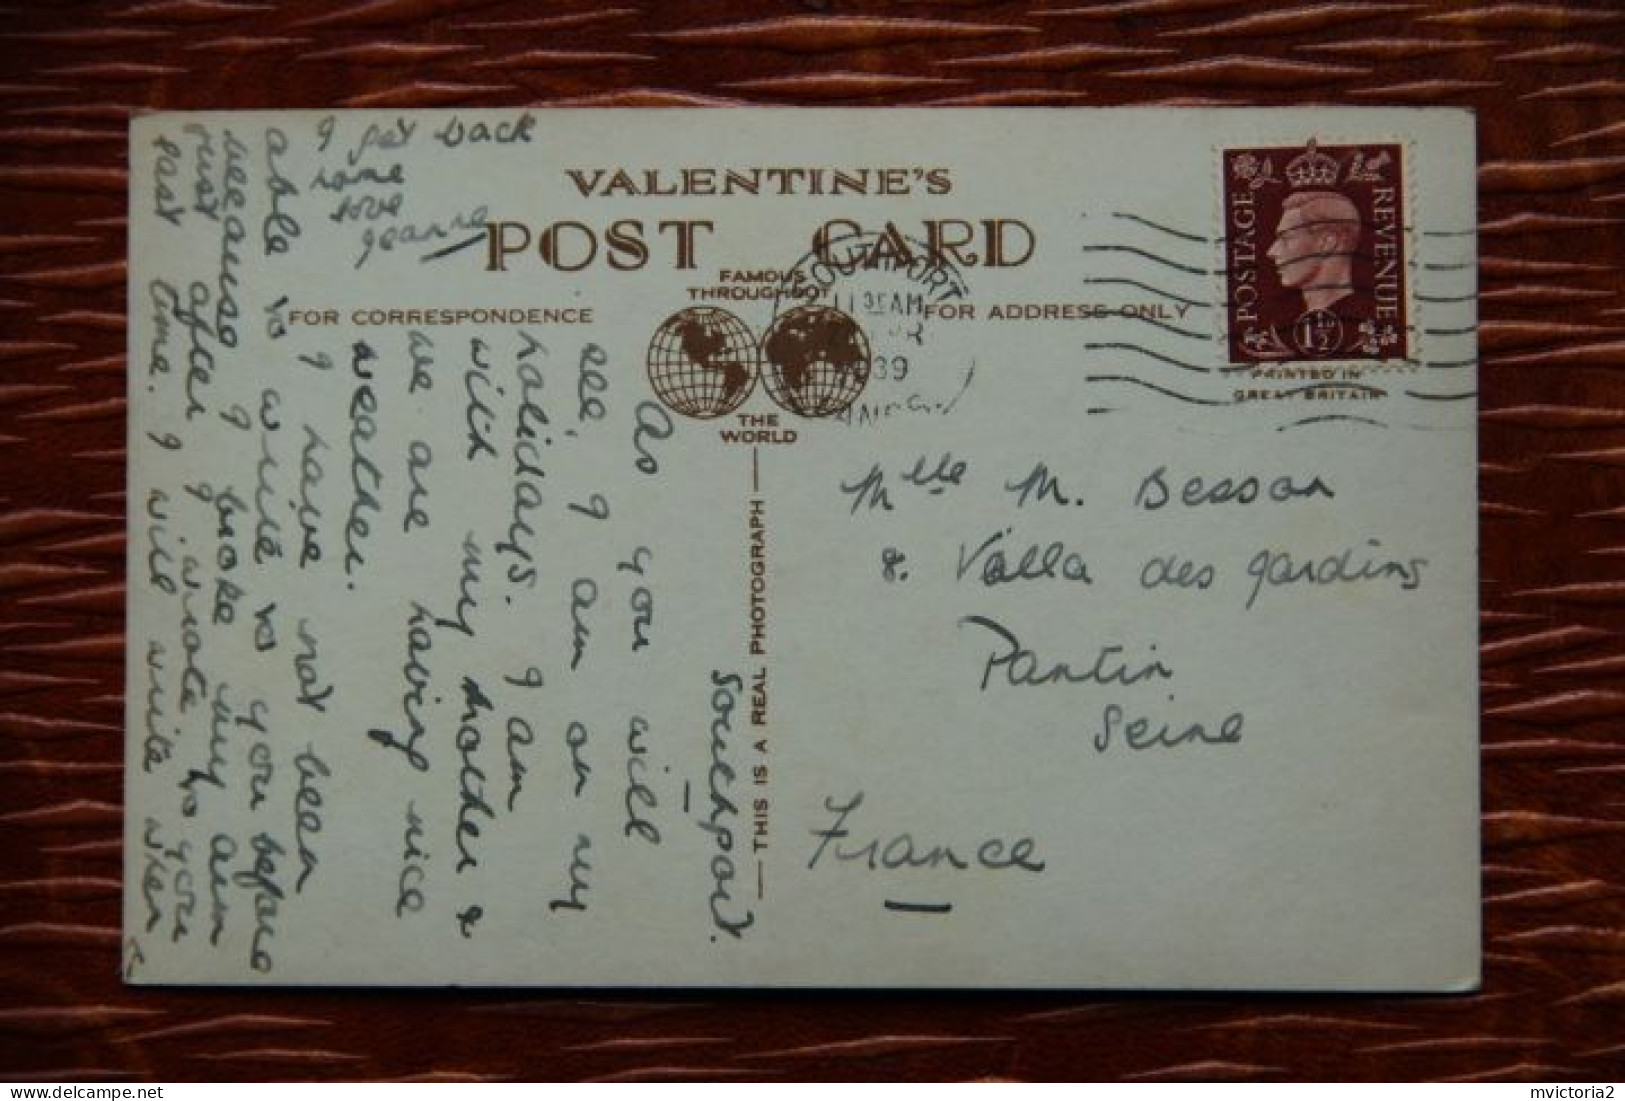 VALENTINE'S
POST CARD
FAMOUS
THROUGHOUT
THE
WORLD
FOR CORRESPONDENCE
FOR ADDRESS ONLY
THIS IS A REAL PHOTOGRAPH
SOUTHPORT
11 35 AM
39
LANCS.
POSTAGE
REVENUE
1½D
PRINTED IN
GREAT BRITAIN
Southport.
As you will
see, I am on my
holidays. I am
with my mother &
we are having nice
weather.
I have not been
able to write to you before
because I broke my arm
just after I wrote to you
last time. I will write when
I get back
home
love
Jeanne
Mlle M. Besson
8. Villa des jardins
Pantin
Seine
France
delcampe.net
mvictoria2